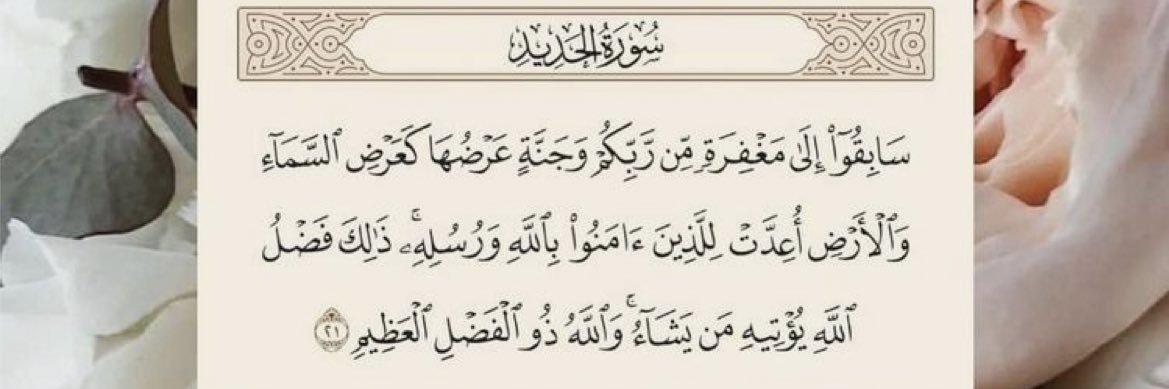 سُورَةُ الحَدِيدِ
سَابِقُوٓا۟ إِلَىٰ مَغْفِرَةٍۢ مِّن رَّبِّكُمْ وَجَنَّةٍ عَرْضُهَا كَعَرْضِ ٱلسَّمَآءِ
وَٱلْأَرْضِ أُعِدَّتْ لِلَّذِينَ ءَامَنُوا۟ بِٱللَّهِ وَرُسُلِهِۦ ۚ ذَٰلِكَ فَضْلُ
ٱللَّهِ يُؤْتِيهِ مَن يَشَآءُ ۚ وَٱللَّهُ ذُو ٱلْفَضْلِ ٱلْعَظِيمِ ٢١